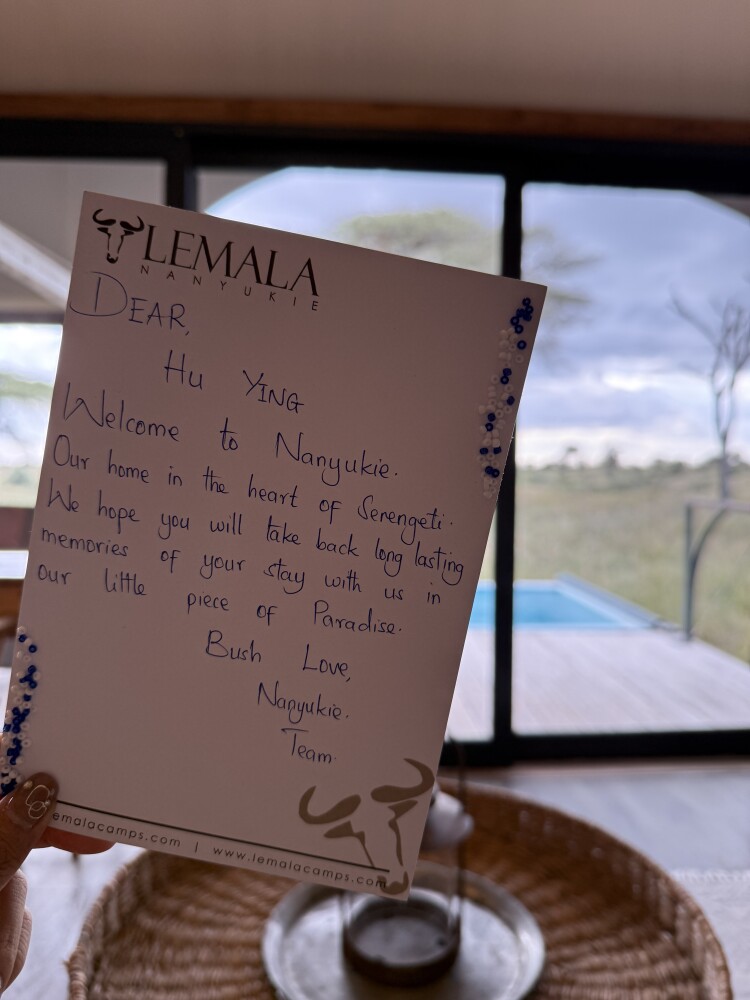 LEMALA
NANYUKIE
DEAR,
Hu YING
Welcome to Nanyukie.
Our home in the heart of Serengeti.
We hope you will take back long lasting
memories of your stay with us in
our little piece of Paradise.
Bush Love,
Nanyukie.
Team.
emalacamps.com | www.lemalacamps.com